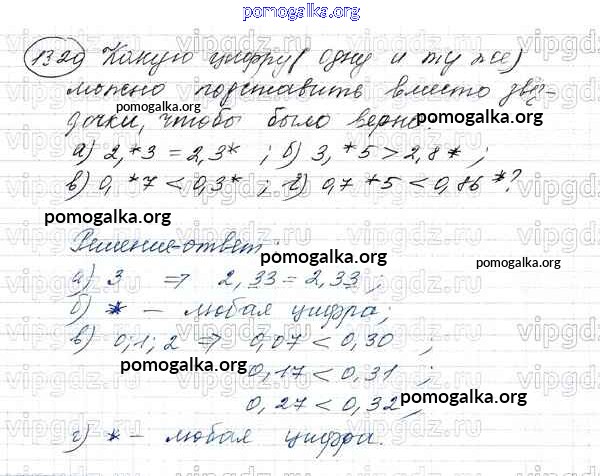 pomogalka.org
1320 Какую цифру (одну и ту же)
можно подставить вместо звё-
здочки, чтобы было верно:
pomogalka.org
pomogalka.org
а) 2,*3 = 2,3* ; б) 3,*5 > 2,8* ;
в) 0,*7 < 0,3* ; г) 0,7*5 < 0,86*?
pomogalka.org
Решение-ответ:
pomogalka.org
pomogalka.org
а) 3 ⇒ 2,33 = 2,33 ;
б) * – любая цифра;
в) 0; 1; 2 ⇒ 0,07 < 0,30 ;
pomogalka.org
0,17 < 0,31 ;
pomogalka.org
0,27 < 0,32 ;
г) * – любая цифра.
pomogalka.org